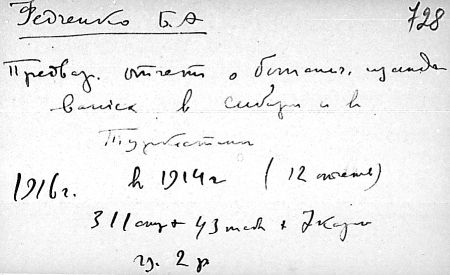 Федченко Б.А 728
Предвар. отчетъ о ботанич. изслѣдо
ваніях в Сибири и в
Туркестане
1916 г. в 1914 г (12 отчетъ)
311 стр + 43 табл + 7 карт
ц. 2 р